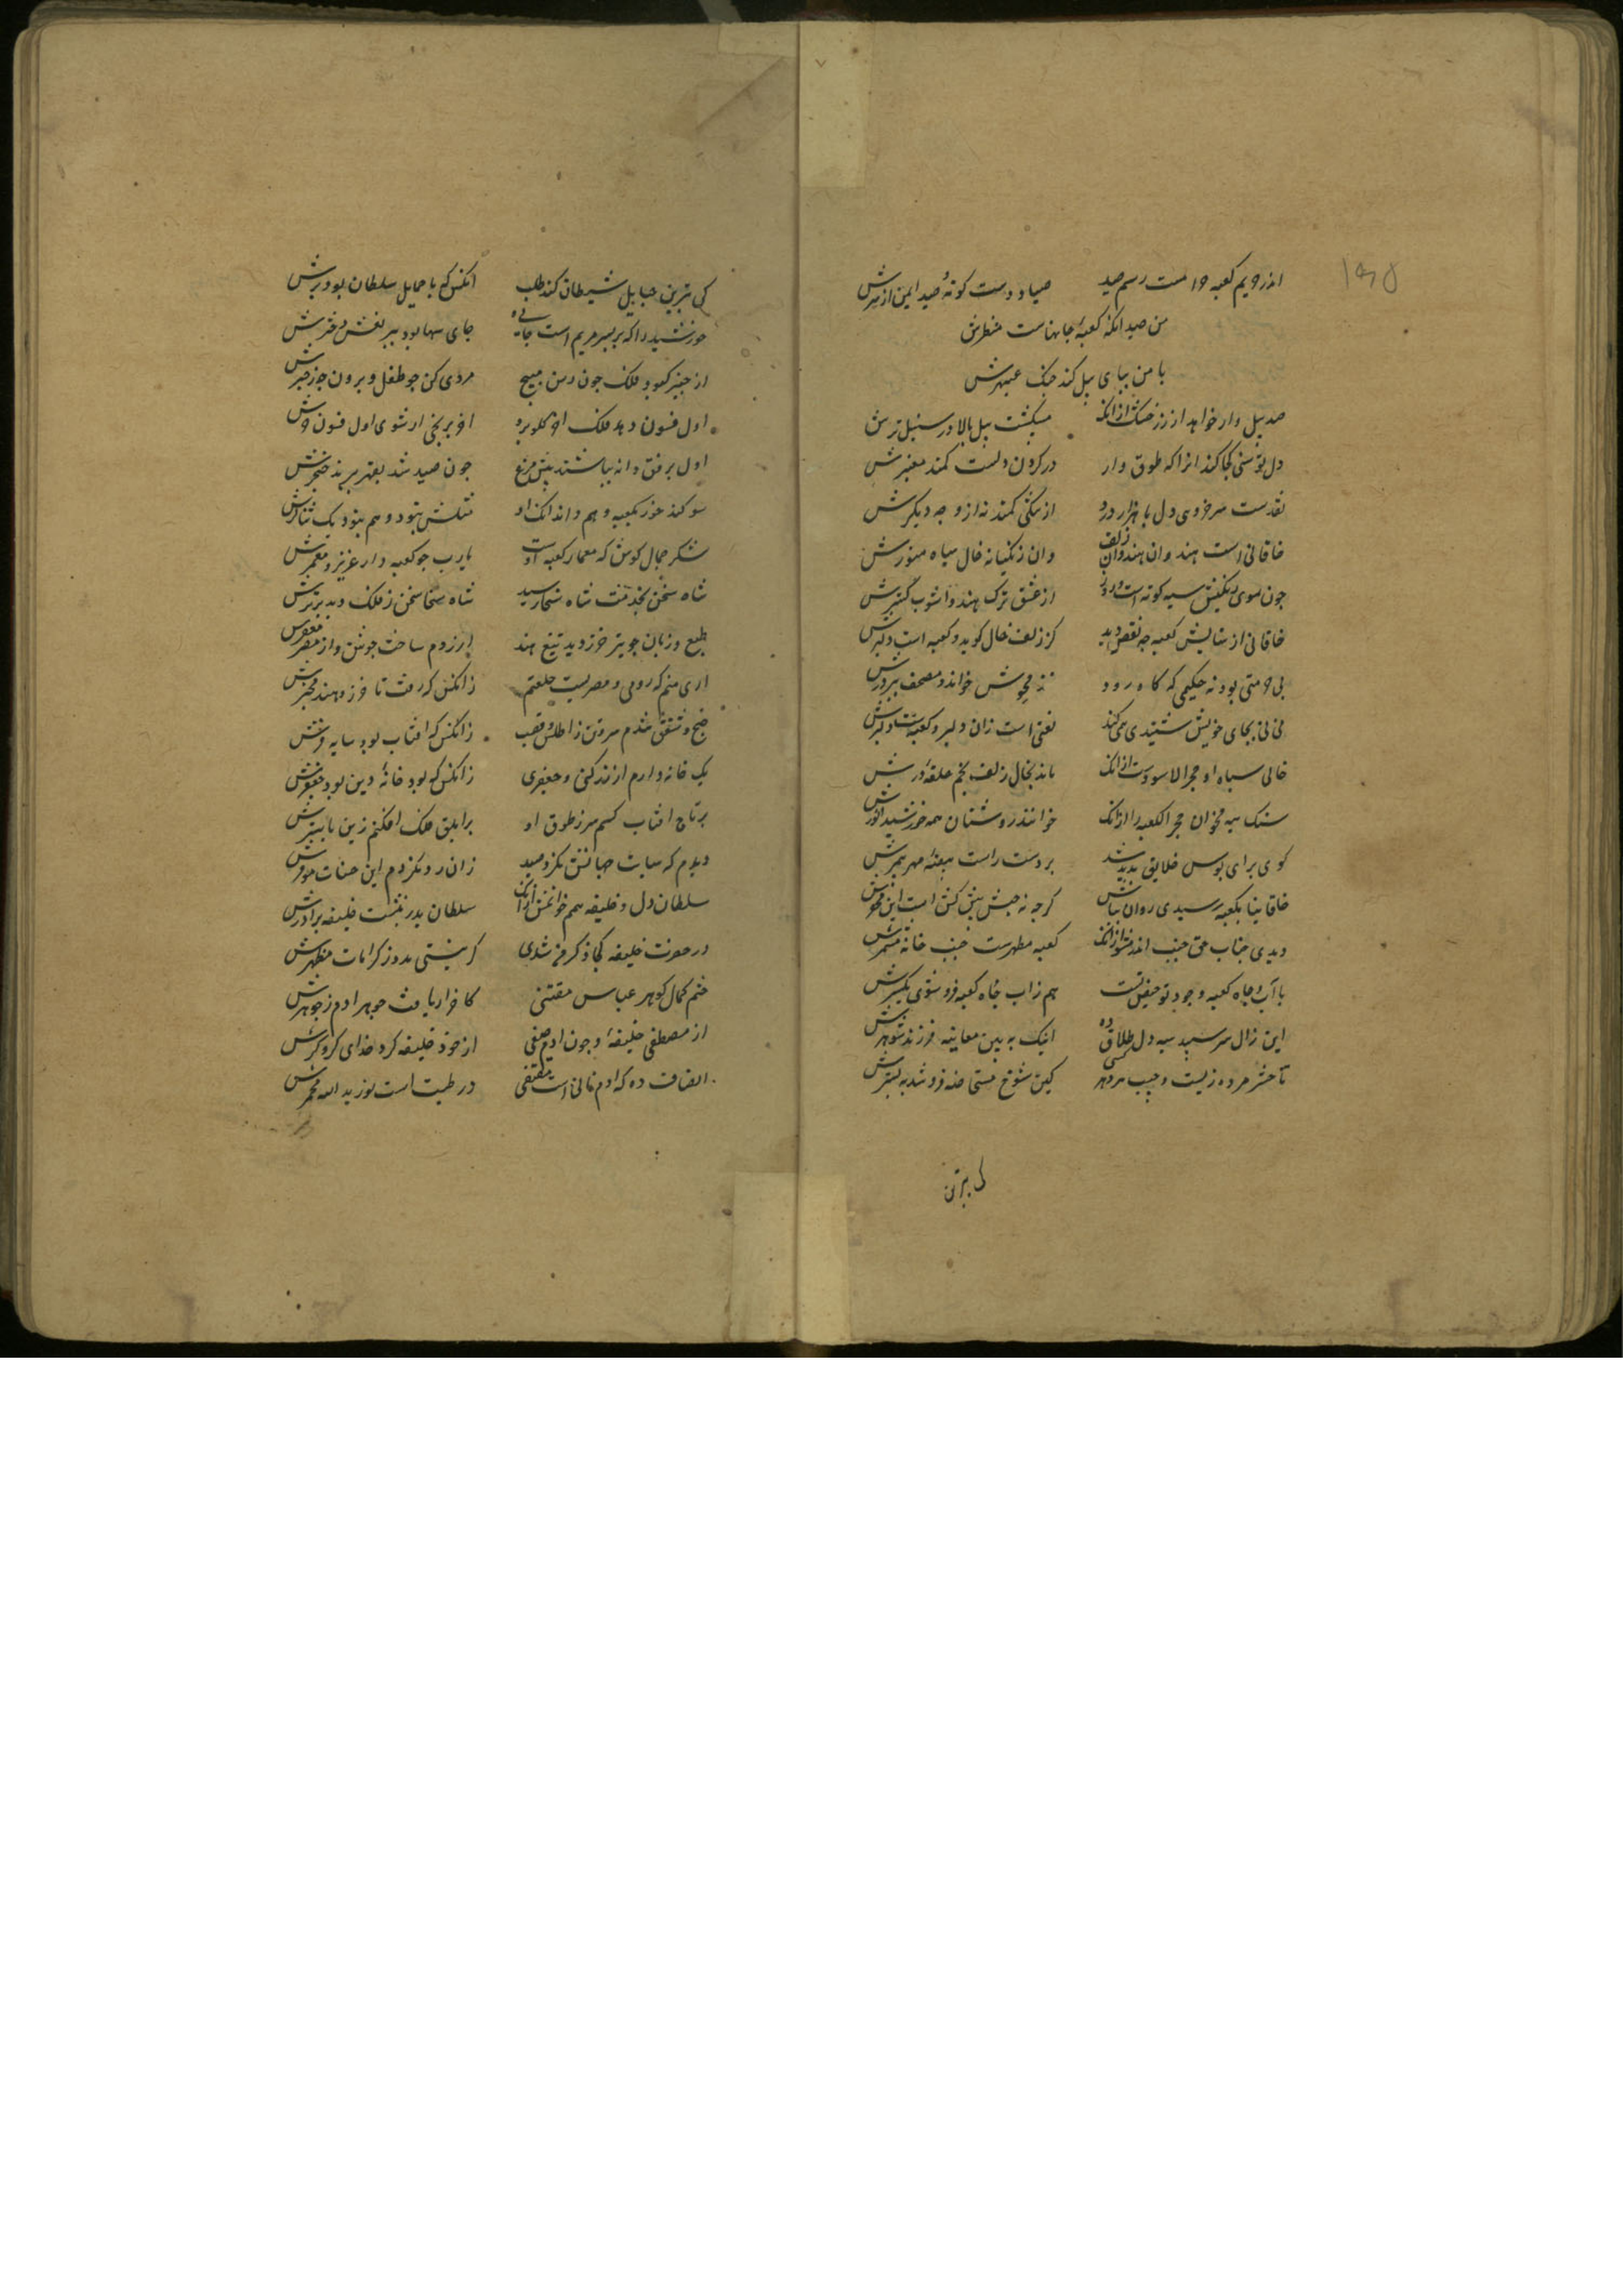 ۱۹۵
اندر حریم کعبه حرامست رسم صید صیاد دست کوته و صید ایمن از سرش
من صید انکه کعبهٔ جانهاست منظرش
با من بپای پیل کند جنک عبهرش
صد پیل وار خواهد از زر خشک از انک مشکست پیل بالا در سنبل ترش
دل توسنی کجا کند انرا که طوق وار در کردن دلست کمند معنبرش
نقدست سرخ روی دل با هزار درد از تنکی کمند نه از وجه دیکرش
خاقانی است هند وان هندوانه زلف وان زنکیانه خال سیاه منورش
چون موی زنکیش سیه کوته است روز از عشق ترک هندو اشوب کسترش
خاقانی از ستایش کعبه چه نقص دید کز زلف و خال کوید و کعبه است دلبرش
بی حرمتی بود نه حکیمی که کاه ورد زند مجوس خواند و مصحف ببر درش
نی نی بجای خویش نسیبی همی کند نعتی است زان دلبر و کعبه است دلبرش
خال سیاه او حجر الاسودست از انک ماند بخال زلف بخم حلقهٔ درش
سنک سیه مخوان حجر الکعبه را از انک خوانند روشنان همه خورشید انورش
کوی برای بوس خلایق پدید شد بر دست راست بیضهٔ مهر پیمبرش
خاقانیا بکعبه رسیدی روان بپاش کرچه نه جنس پیش کش است این محقرش
دیدی جناب حق جنب اندر مشو از انک کعبه مطهرست جنب خانه مشمرش
با آب و جاه کعبه وجود تو حیض تست هم زاب چاه کعبه فرو شوی یکسرش
این زال سر سپید سیه دل طلاق ده اینک ببین معاینه فرزند شوهرش
تا حشر مرده زیست و جنب مرد هر کسی کین شوخ مستحاضه فرو شد ببسترش
کی بدترین
کی بدترین حبایل شیطان کند طلب انکس که با حمایل سلطان بود برش
خورشید را که بر پسر مریم است جای جای سها بود بسر نعش و دخترش
از چنبر کبود فلک چون رسن مپیچ مردی کن چو طفل و برون جه ز چنبرش
اول فسون دهد فلک اخر کلو برد اخر بری ار شوی اول فسون خرش
اول برفق دانه بپاشند پیش مرغ چون صید شد بقهر ببرند حنجرش
سوکند خور بکعبه و هم داند انک او مثلش نبود و هم نبود یک ثناکرش
شکر جمال کوی که معمار کعبه اوست یارب چو کعبه دار عزیز و معمرش
شاه سخن بخدمت شاه سخا رسید شاه سخا سخن ز فلک دید برترش
طبع و زبان چو تیر خزر دید و تیغ هند از روم ساخت جوشن و از مصر مغفرش
اری منم که رومی و مصریست خلعتم زانکس که رفت تا خزر و هند مخبرش
صبح و شفق شدم سر و تن ز اطلس و قصب زانکس که افتاب بود سایه فرش
یک خانه دارم از زر کنی و جعفری زانکس که بود خانهٔ دین بود جعفرش
بر تاج افتاب کشم سر ز طوق او بر ابلق فلک افکنم زین باسترش
دیدم که سیات جهانش نکرد صید زان رد نکردم این حسنات موفرش
سلطان دل و خلیفه همم خوانمش از انک سلطان پدر نبشت خلیفه برادرش
در حضرت خلیفه کجا ذکر من شدی کر نیستی مدد ز کرامات مظهرش
ختم کمال کوهر عباس مقتفی کافراز یافت جوهر ادم ز جوهرش
از مصطفی خلیفه و چون ادم صفی از خود خلیفه کرد خدای کروکرش
انصاف ده که ادم ثانی است مقتفی در طینت است نور ید الله مخمرش